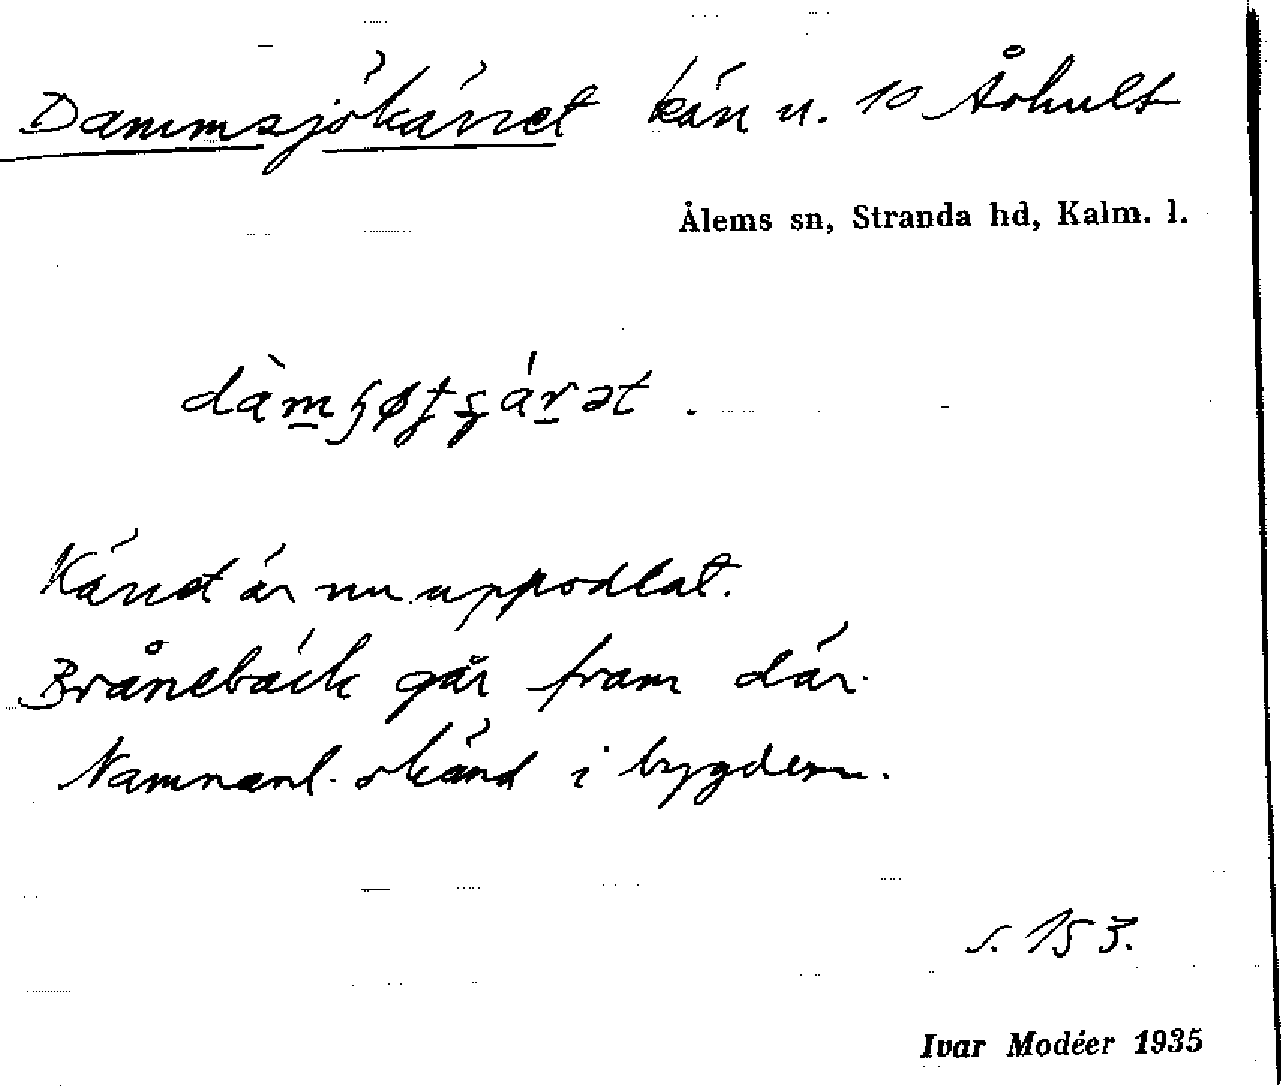 Dammsjökärret kärr u. 10 Århult
Ålems sn, Stranda hd, Kalm. l.
Kärret är nu uppodlat.
Brånebäck går fram där.
Namnanl. okänd i bygden.
s. 153.
Ivar Modéer 1935